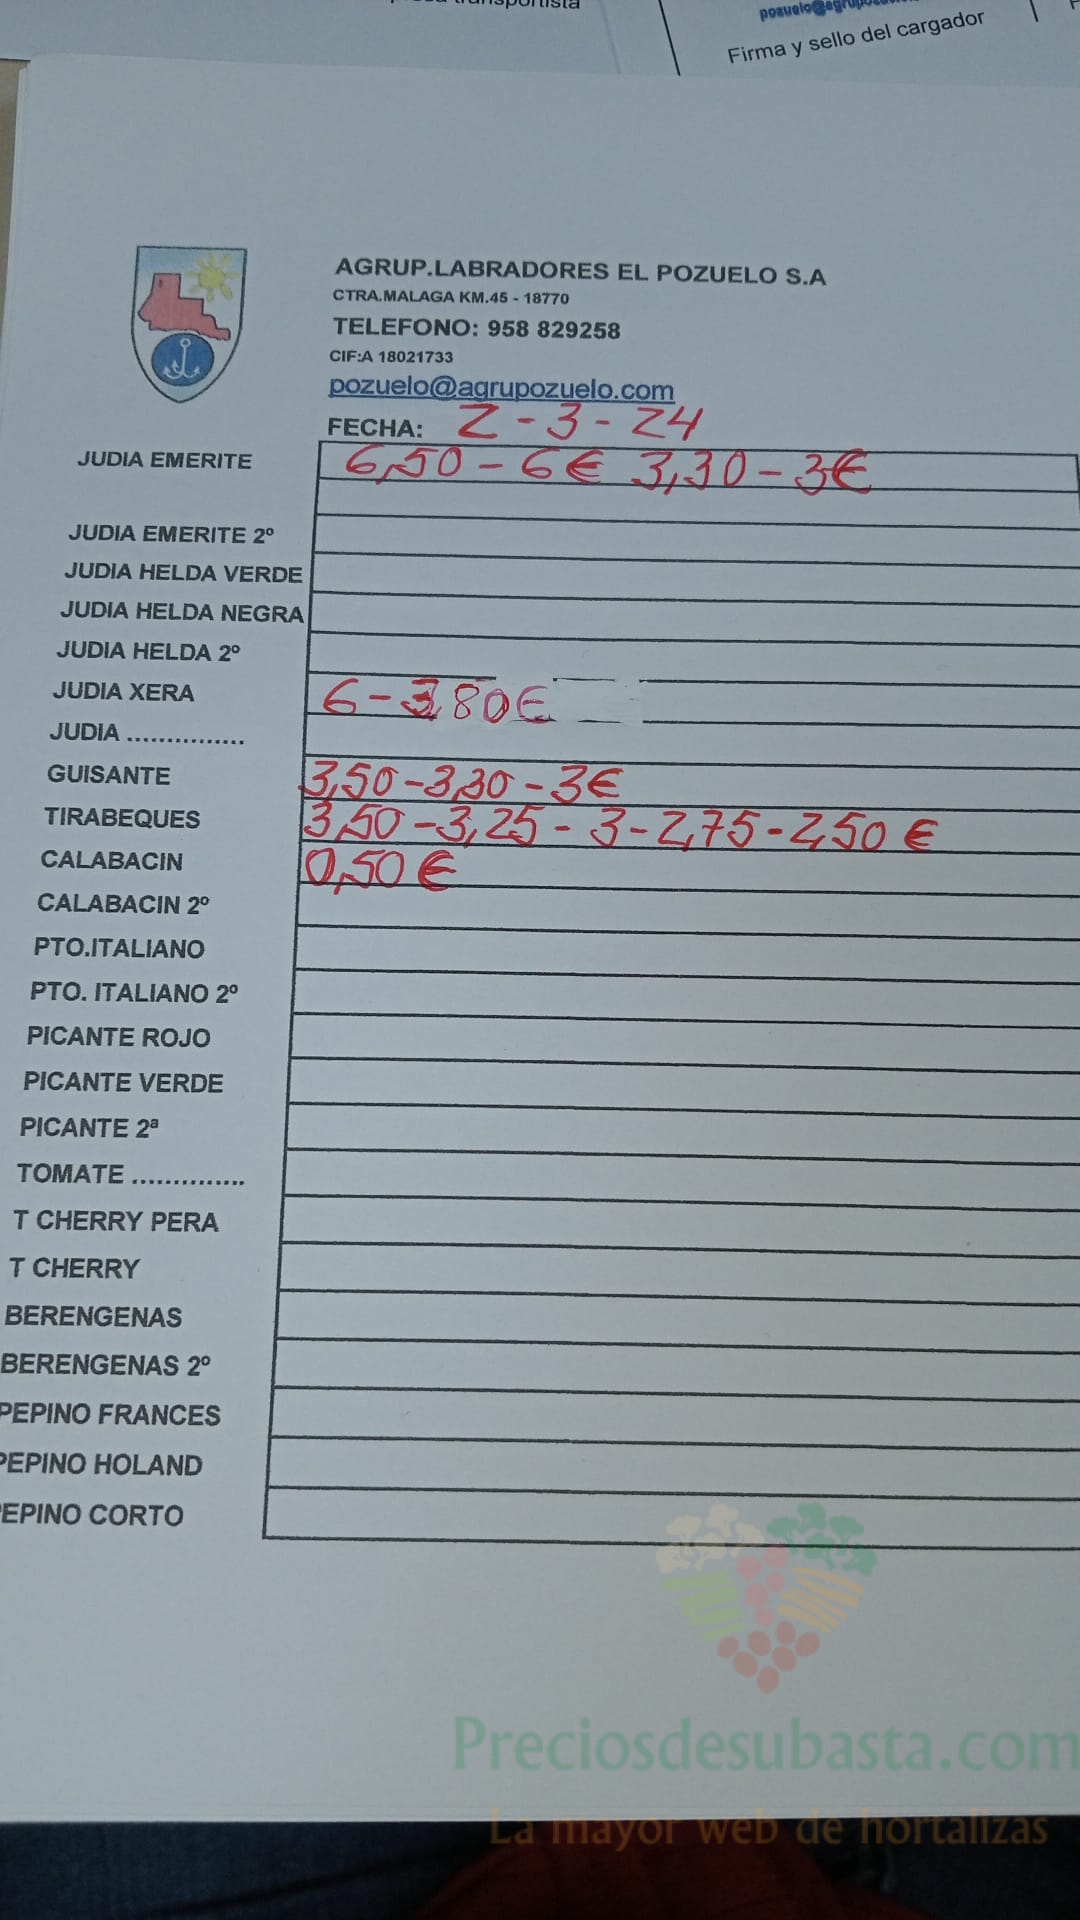 transportista
Firma y sello del cargador
AGRUP.LABRADORES EL POZUELO S.A
CTRA.MALAGA KM.45 - 18770
TELEFONO: 958 829258
CIF:A 18021733
pozuelo@agrupozuelo.com
FECHA: 2-3-24
JUDIA EMERITE 6,50-6€ 3,30-3€
JUDIA EMERITE 2º
JUDIA HELDA VERDE
JUDIA HELDA NEGRA
JUDIA HELDA 2º
JUDIA XERA 6-3,80€
JUDIA ...............
GUISANTE 3,50-3,30-3€
TIRABEQUES 3,50-3,25-3-2,75-2,50€
CALABACIN 0,50€
CALABACIN 2º
PTO.ITALIANO
PTO. ITALIANO 2º
PICANTE ROJO
PICANTE VERDE
PICANTE 2ª
TOMATE ..............
T CHERRY PERA
T CHERRY
BERENGENAS
BERENGENAS 2º
PEPINO FRANCES
PEPINO HOLAND
EPINO CORTO
Preciosdesubasta.com
La mayor web de hortalizas